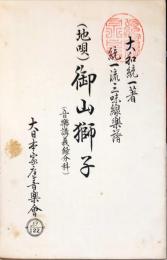 大和統一著
統一流・三味線樂譜
(地唄)御山獅子
(音樂講義録分科)
大日本家庭音樂會